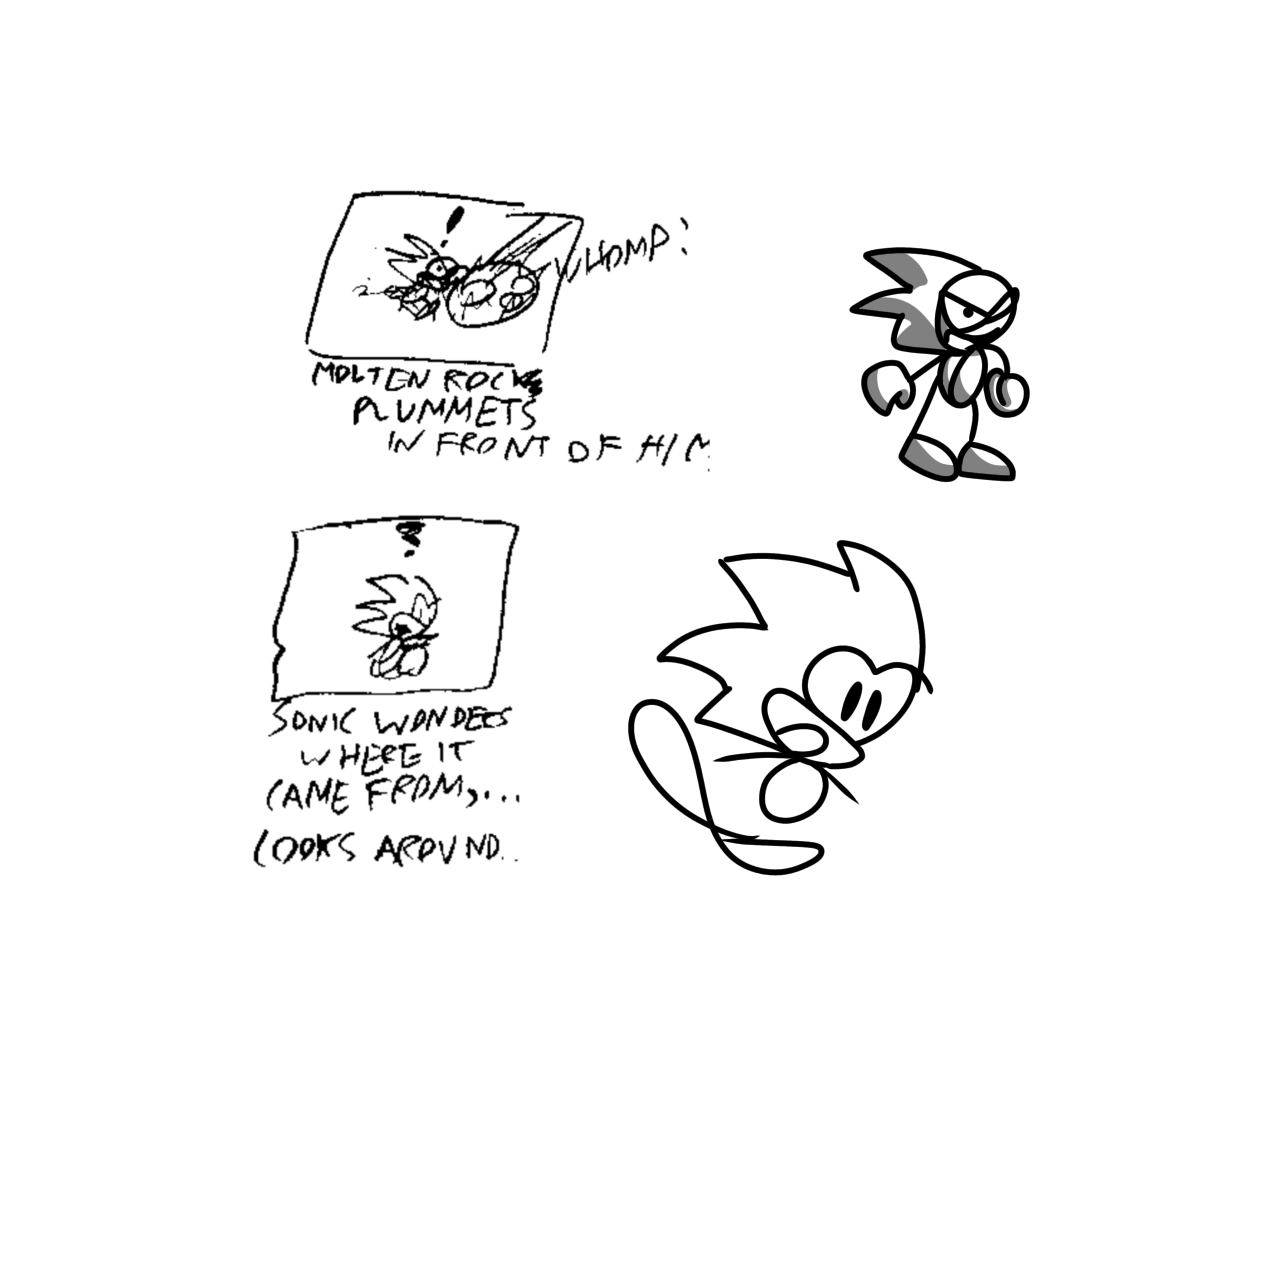 !
WHOMP!
MOLTEN ROCK
PLUMMETS
IN FRONT OF HIM
SONIC WONDERS
WHERE IT
CAME FROM,...
LOOKS AROUND..